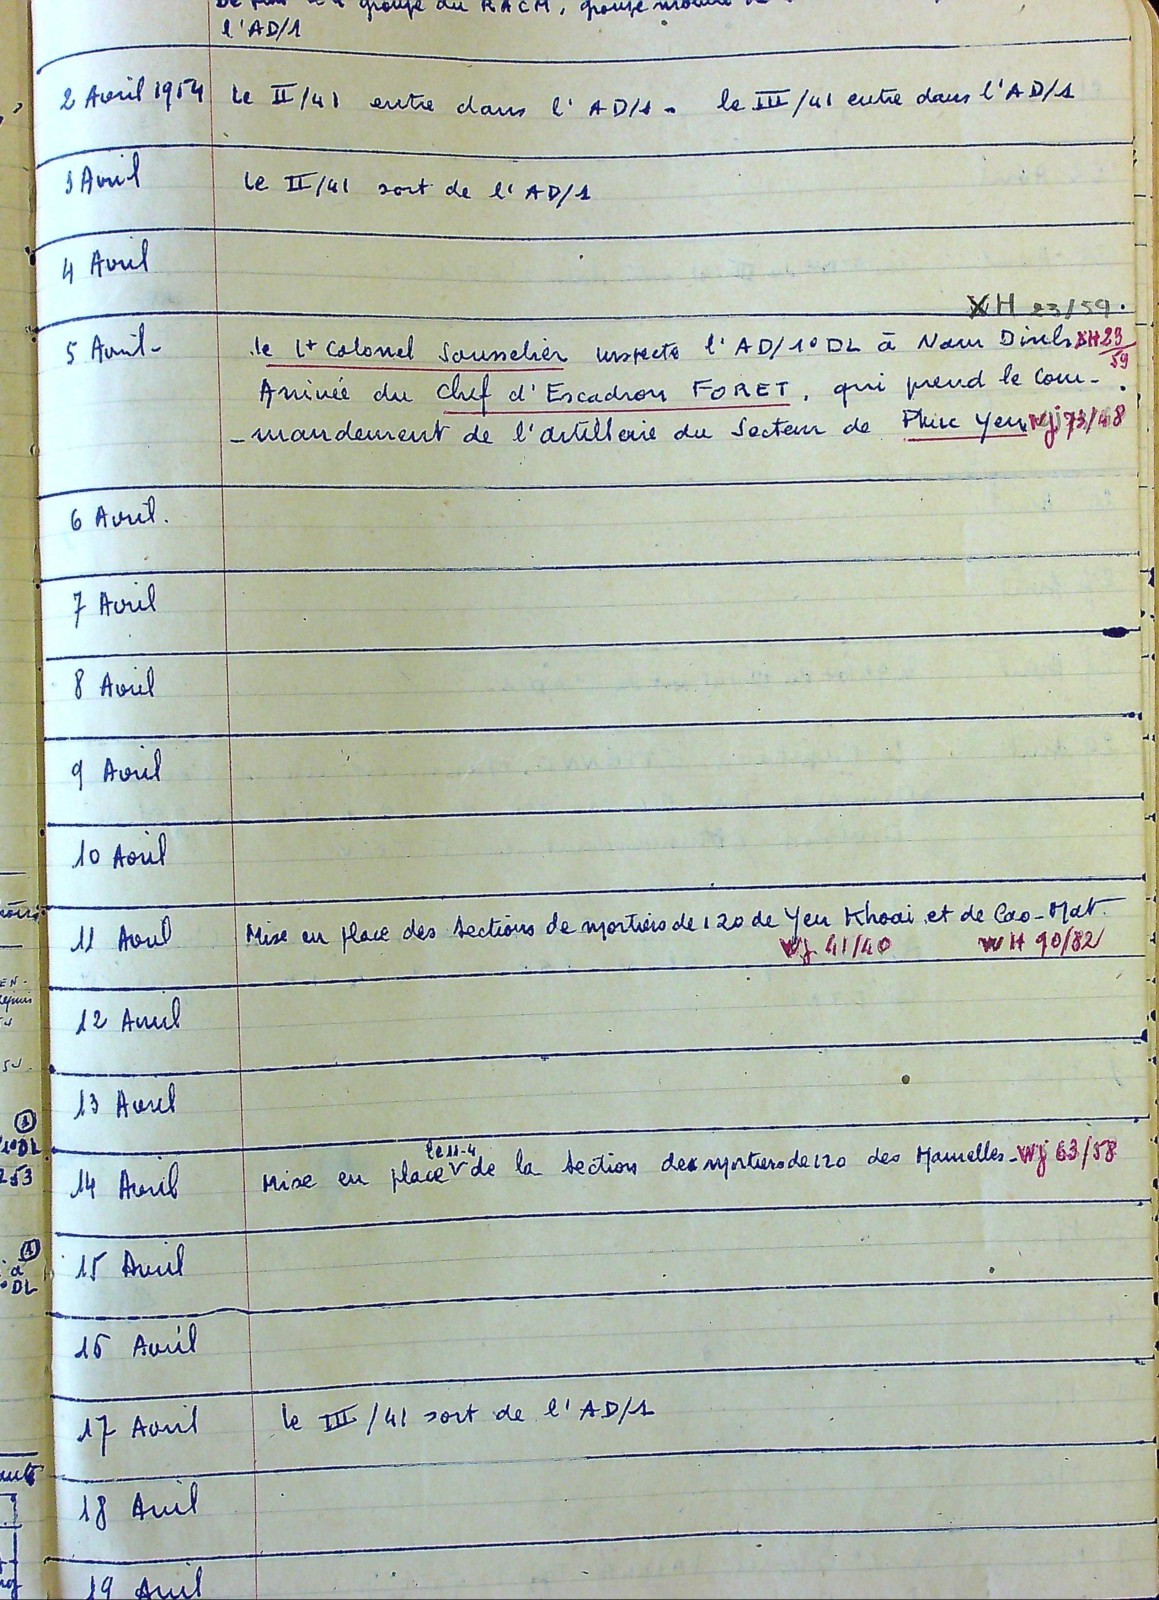 groupe du RACM, groupe
l'AD/1
2 Avril 1954 Le II/41 entre dans l'AD/1 - le III/41 entre dans l'AD/1
3 Avril Le II/41 sort de l'AD/1
4 Avril
XH 23/59.
5 Avril - le Lt Colonel Sousselier inspecte l'AD/1° DL à Nam Dinh XH 23/59
Arrivée du Chef d'Escadron FORET, qui prend le Com-
-mandement de l'artillerie du Secteur de Phuc Yen Wj 73/48
6 Avril.
7 Avril
8 Avril
9 Avril
10 Avril
11 Avril Mise en place des Sections de mortiers de 120 de Yen Khoai et de Cao-Mat.
Wj 41/40 WH 90/82
12 Avril
13 Avril
le 11-4
14 Avril Mise en place V de la Section des mortiers de 120 des Mamelles - Wj 63/58
15 Avril
16 Avril
17 Avril le III/41 sort de l'AD/1
18 Avril
19 Avril
EN-
depuis
54.
①
1°DL
253
①
à
DL